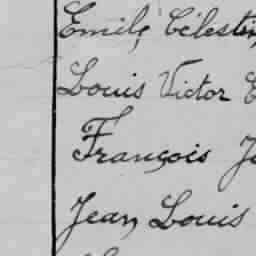 Emile Célestin
Louis Victor
François
Jean Louis